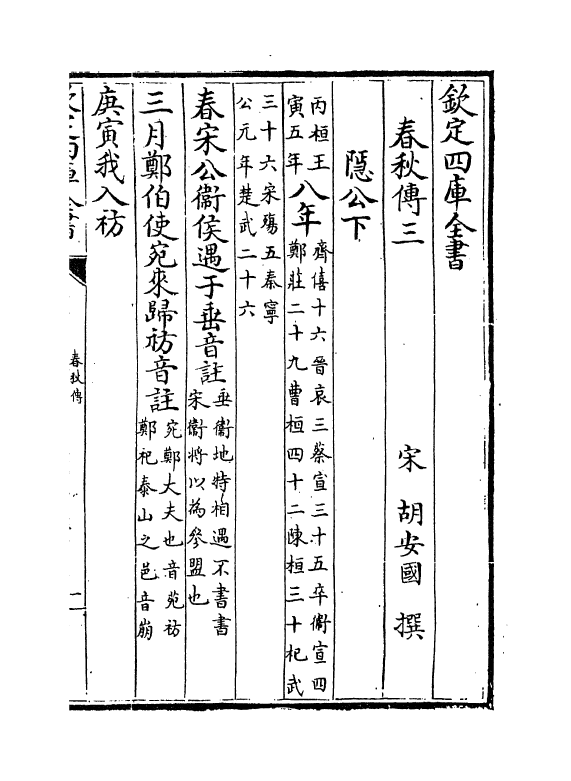 欽定四庫全書
春秋傳三
宋 胡安國 撰
隱公下
丙桓王
寅五年
八年
齊僖十六晉哀三蔡宣三十五卒衞宣四
鄭莊二十九曹桓四十二陳桓三十杞武
三十六宋殤五秦寧
公元年楚武二十六
春宋公衞侯遇于垂音註
垂衞地特相遇不書書
宋衞將以為參盟也
三月鄭伯使宛來歸祊音註
宛鄭大夫也音苑祊
鄭祀泰山之邑音崩
庚寅我入祊
春秋傳